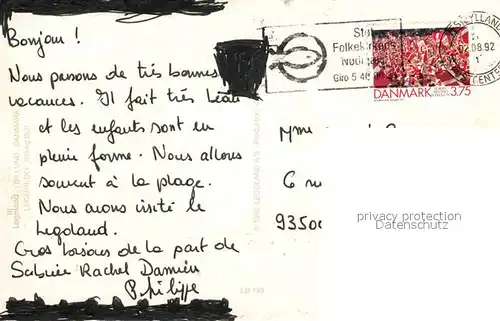 Bonjour !
Nous passons de très bonnes
vacances. Il fait très beau
et les enfants sont en
pleine forme. Nous allons
souvent à la plage.
Nous avons visité le
Legoland.
Gros bisous de la part de
Sabrée Rachel Damien
Philippe
Støt
Folkekirkens
Nødhjælp
Giro 5 40
08.92
CENTER
DANMARK 3.75
Mme
6
9350
privacy protection
Datenschutz